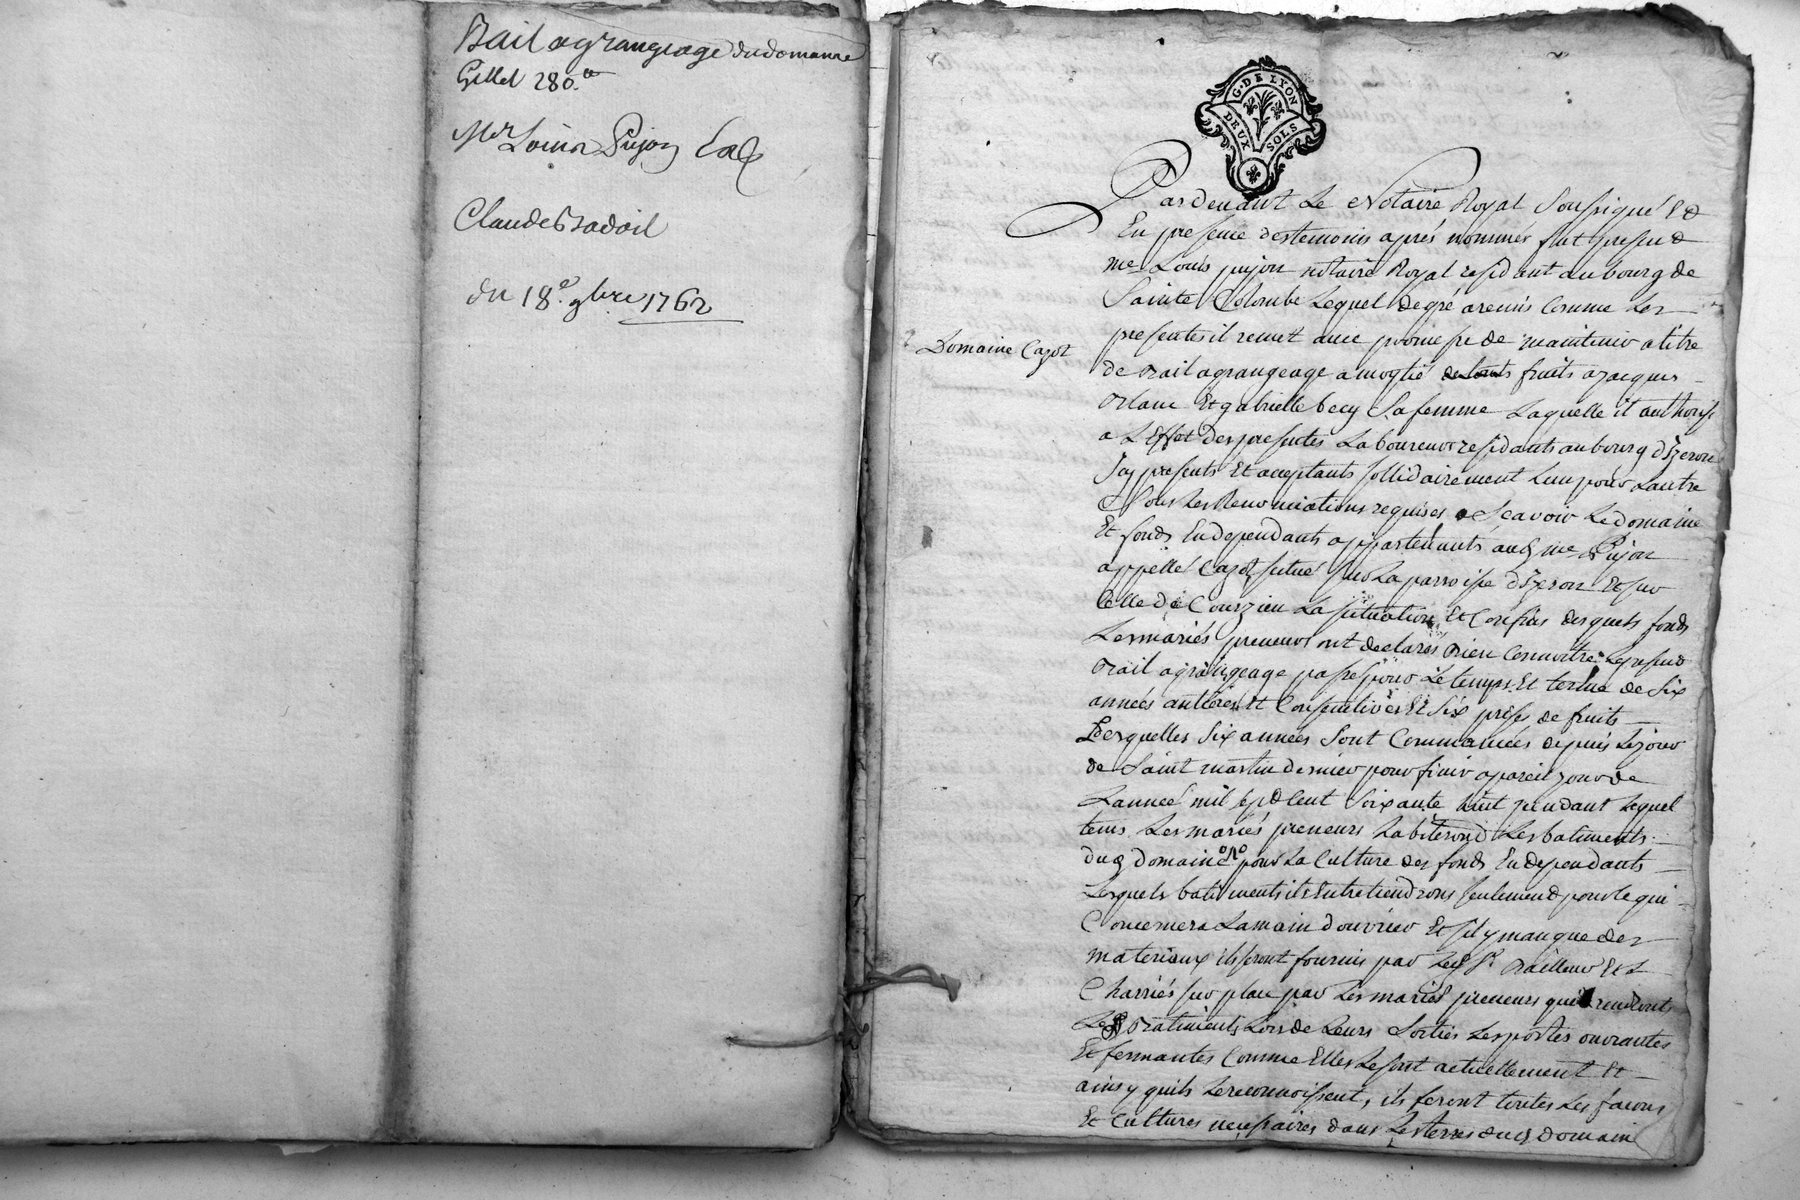 Bail agrangeage dudomaine
Gillet 280.tt
Mr Loüis Pujon
Claude Badoil
du 18e. 9bre 1762
G. DE LYON
DEUX SOLS
Pardevant Le Notaire Royal Soussigné Et
En presence destemoins aprés nommés fut present
me Loüis pujon notaire Royal resident au bourg de
Sainte Colombe Lequel degré aremis Comme Les
presentes il remet avec promesse de maintenir a titre
Domaine Cazot
de Bail agrangeage a moytié de touts fruits a jacques
Et gabrielle Sa femme Laquelle il authorise
a L'Effet des presentes Laboureurs residants au bourg d'Izeron
Icy presents Et acceptants sollidairement Lun pour Lautre
Sous Les Renonciations requises Scavoir Le domaine
Et fonds En dependants appartenants aud. me Pujon
appellé Cazot situé sur La parroisse d'Izeron Et sur
Celle de Courzieu La situation Et Confins desquels fonds
Les mariés preneurs ont declarés Bien Connoitre Le present
Bail agrangeage passé pour Le temps Et terme de Six
années entieres Et Consecutives Et Six prises de fruits
Lesquelles Six années Sont Commancées depuis Le jour
de Saint martin dernier pour finir a pareil jour de
L'année mil sept Cent Soixante huit pendant Lequel
tems Les mariés preneurs habiteront Les batiments
dud. Domaine pour La Culture des fonds En dependants
Lesquels batiments ils Entretiendrons seulement pour Ce qui
Concernera La main d'ouvrier Et s'il y manque des
materiaux ils seront fournis par Led. Sr. Bailleur Et
Charriés sur place par Les mariés preneurs qui rendront
Led. Batiments Lors de Leurs Sorties Les portes ouvrantes
Et fermantes Comme Elles Le sont actuellement Et
ainsy quils Le reconnoissent, ils feront toutes Les façons
Et Cultures necessaires dans Les terres dud. Domaine